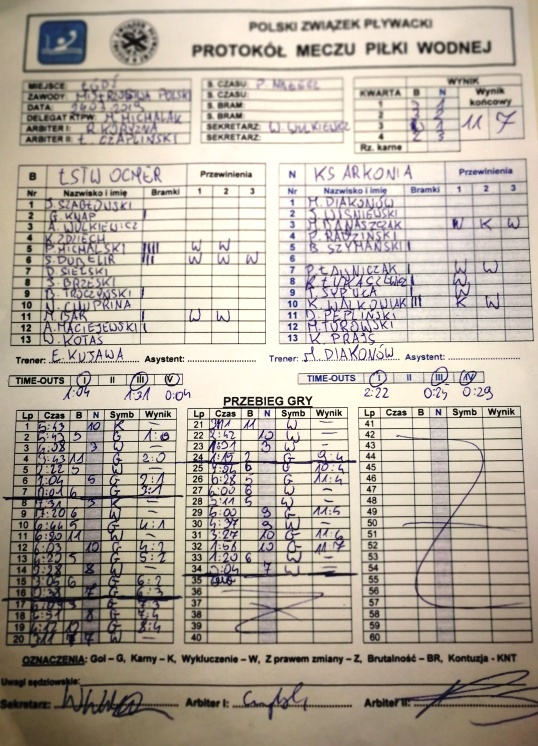 POLSKI ZWIĄZEK PŁYWACKI
PROTOKÓŁ MECZU PIŁKI WODNEJ
MIEJSCE ŁÓDŹ
ZAWODY: MISTRZOSTWA POLSKI
DATA:
DELEGAT KTPW: M. MICHALAK
ARBITER I:
ARBITER II: Ł. CZAPLIŃSKI
S. CZASU:
S. CZASU:
S. BRAM:
S. BRAM:
SEKRETARZ: W. WULKIEWICZ
WYNIK
KWARTA B N Wynik końcowy
1
2
3
4 2 3
Rz. karne
11 7
B ŁSTW OCMER Przewinienia
Nr Nazwisko i imię Bramki 1 2 3
1 J. SZABŁOWSKI
2 G. KNAP I
3 A. WULKIEWICZ
4 K. ZDZIECH
5 P. MICHALSKI IIII W W
6 III W W W
7 D. SIELSKI
8 S. BRZESKI
9 B. TROCZYŃSKI I
10
11 M. ISAK I W W
12 A. MACIEJEWSKI
13 W. KOTAS
Trener: E. KUJAWA Asystent:
N KS ARKONIA Przewinienia
Nr Nazwisko i imię Bramki 1 2 3
1 M. DIAKONÓW
2 J. WIŚNIEWSKI
3 M. DANASZCZAK W K W
4 P. RADZIŃSKI
5 B. SZYMAŃSKI I
6
7 I W W
8 W
9 T. SYPUŁA I W
10 K. WALKOWIAK III K W
11 D. PEPLIŃSKI
12 M. TUROWSKI
13 K. PRAJS
Trener: M. DIAKONÓW Asystent:
TIME-OUTS I II III IV
1:04 1:31 0:04
TIME-OUTS I II III IV
2:22 0:24 0:29
PRZEBIEG GRY
Lp Czas B N Symb Wynik
1 5:43 10 K —
2 5:43 5 G 1:0
3 4:08 3 W —
4 3:43 11 G 2:0
5 2:22 5 W —
6 2:04 5 G 2:1
7 0:01 6 G 3:1
8 7:31 3 K —
9 7:20 6 W —
10 6:44 5 G 4:1
11 6:20 11 W —
12 6:03 10 G 4:2
13 5 G 5:2
14 8 W —
15 3:05 6 G 6:2
16 0:38 7 G 6:3
17 G 7:3
18 8 G 7:4
19 10 G 8:4
20 7 W —
Lp Czas B N Symb Wynik
21 11 W
22 2:42 10 W
23 1:51 9 W
24 1:15 2 G 9:4
25 6 G 10:4
26 6:28 5 G 11:4
27 6:00 6 W
28 5:11 5 W
29 5:00 9 G 11:5
30 4:37 9 W
31 3:27 10 G 11:6
32 1:56 10 G 11:7
33 1:20 6 W
34 7 W
35
36
37
38
39
40
Lp Czas B N Symb Wynik
41
42
43
44
45
46
47
48
49
50
51
52
53
54
55
56
57
58
59
60
OZNACZENIA: Gol – G, Karny – K, Wykluczenie – W, Z prawem zmiany – Z, Brutalność – BR, Kontuzja - KNT
Uwagi sędziowskie:
Sekretarz: Arbiter I: Arbiter II: